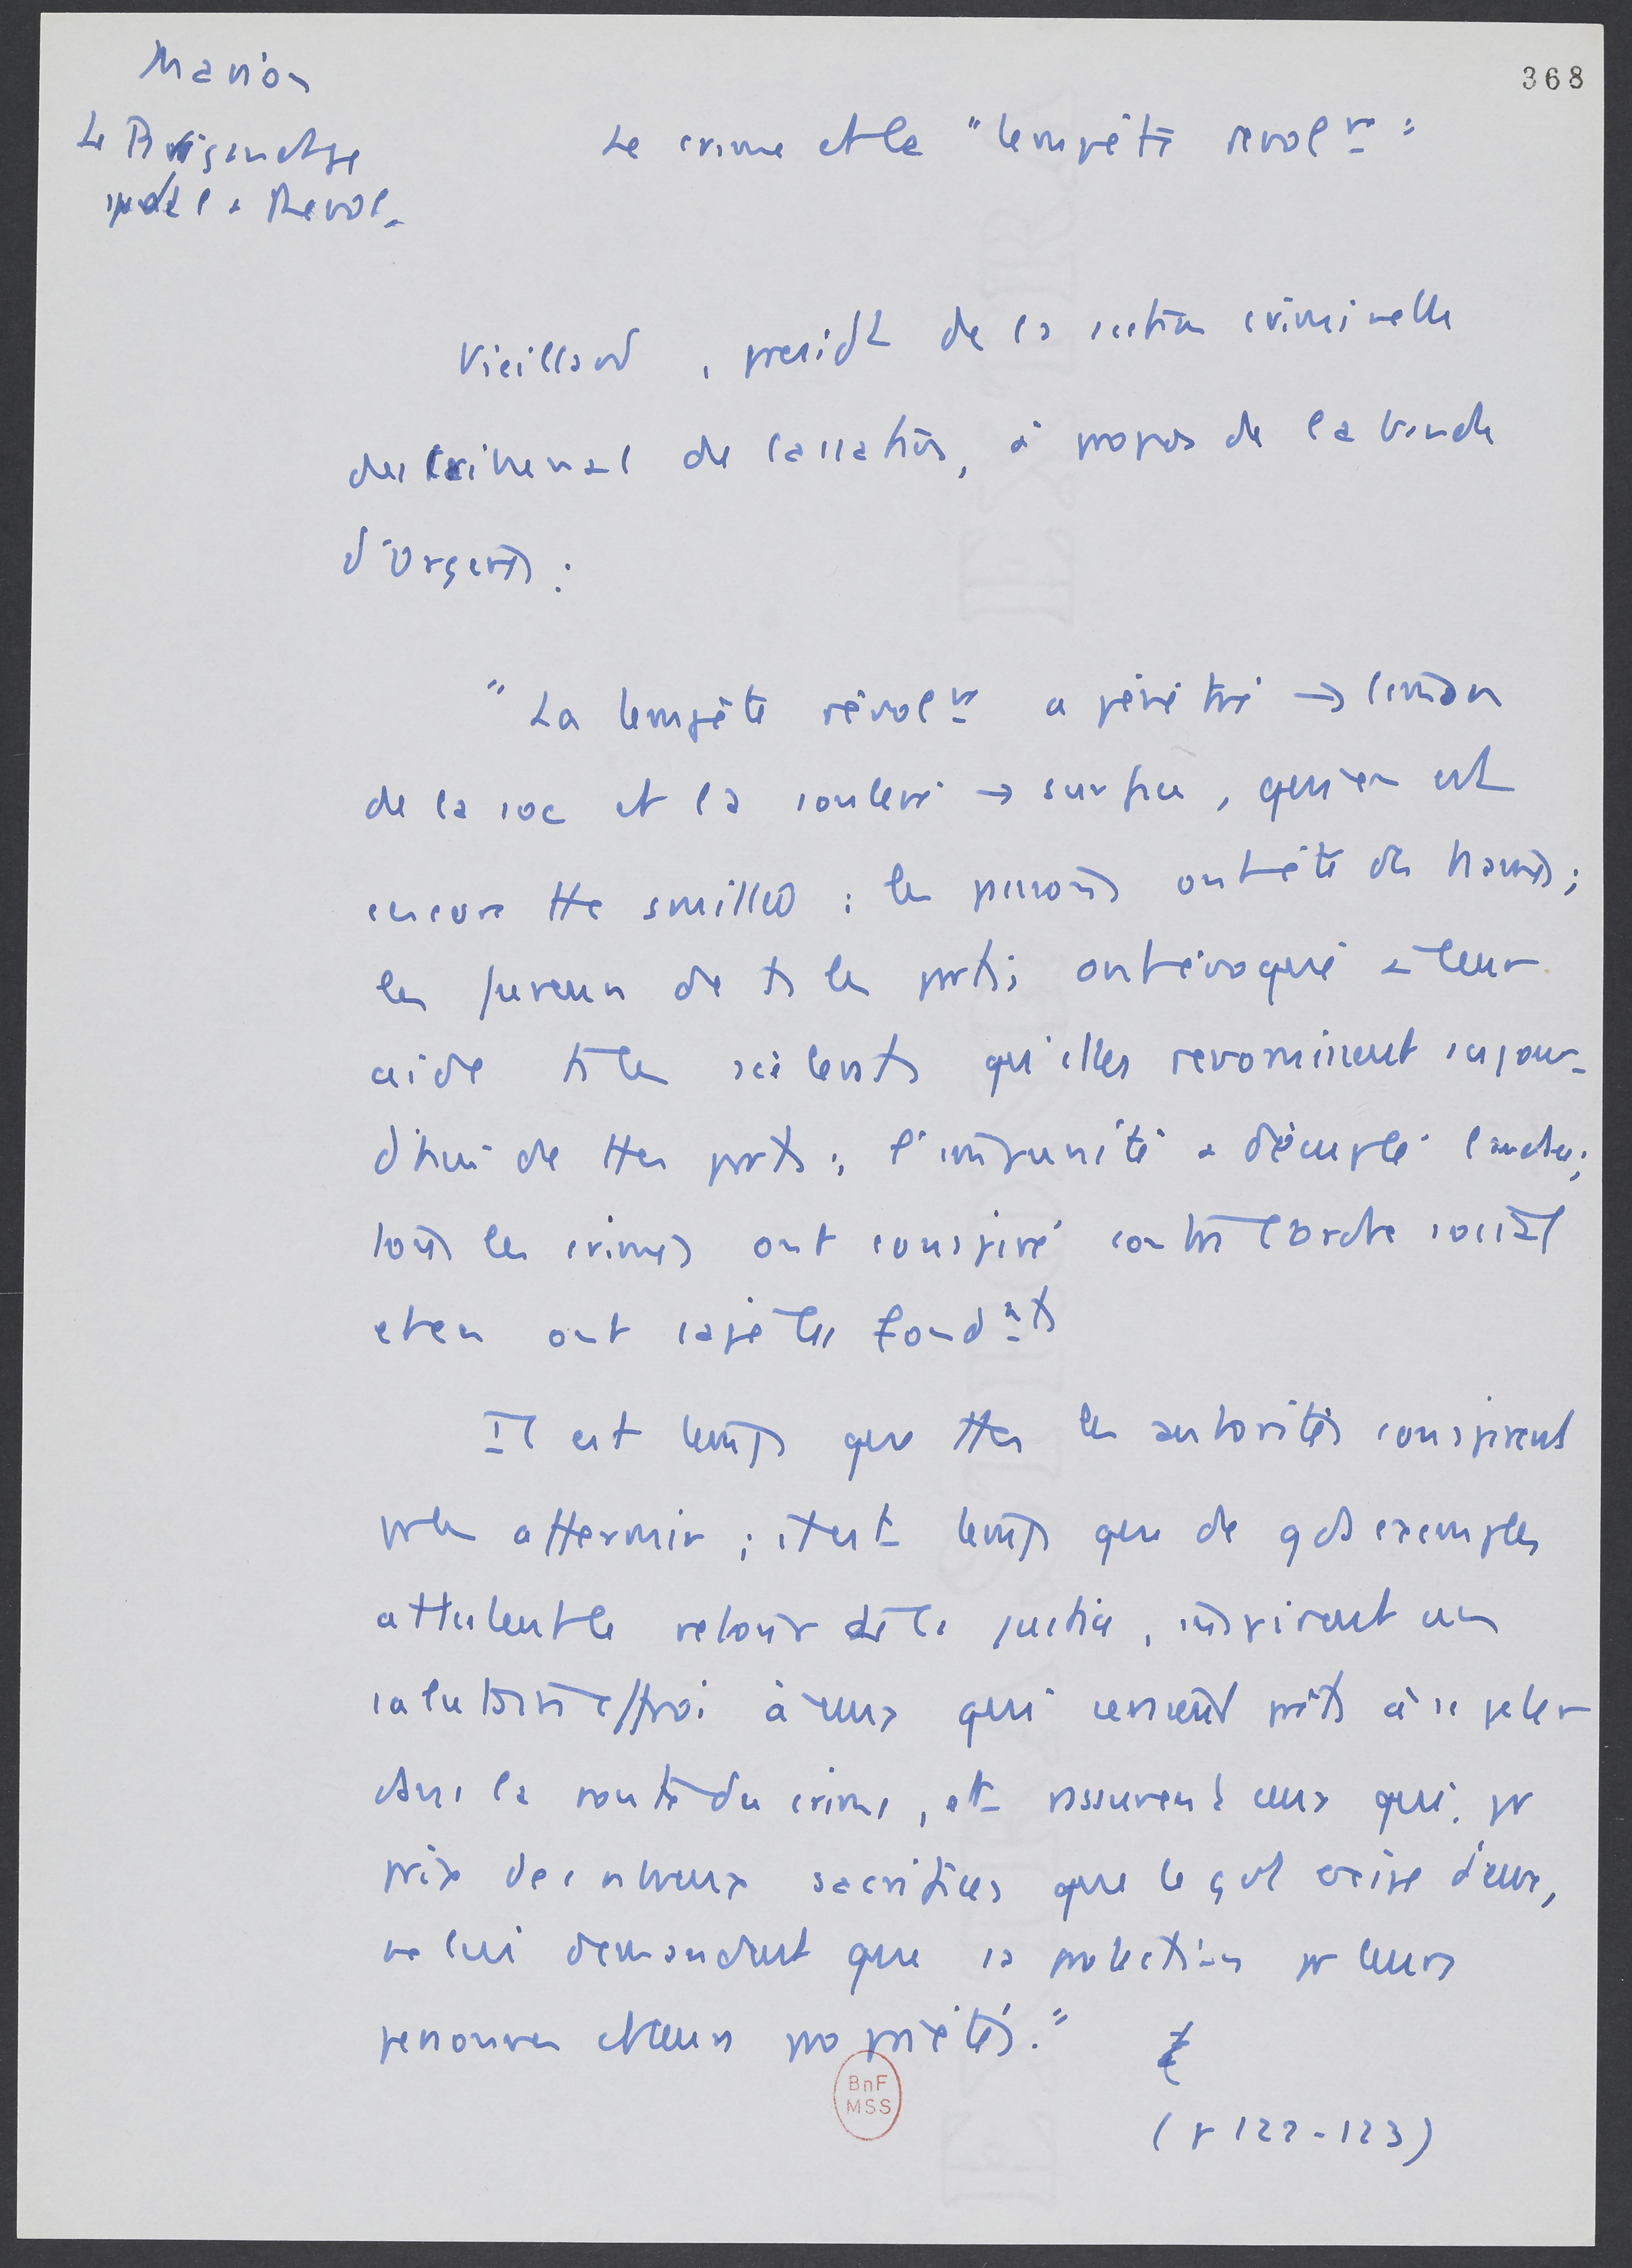 Marion
Le Brigandage
pdt la Revol.
368
Le crime et la "tempête revolre"
Vieillard, presidt de la section criminelle
du tribunal de cassation, à propos de la bande
d'Orgères :
"La tempête révolre a pénétré → limon
de la soc et l'a soulevé → surface, qui en est
encore tte souillée : les prisons ont été des
les fureurs de ts les partis ont évoqué à leur
aide ts les scélérats qu'elles revomissent aujour-
d'hui de ttes parts ; l'impunité a décuplé l'audace ;
tous les crimes ont conspiré contre l'ordre social
et en ont sapé les fondmts
Il est temps que ttes les autorités conspirent
pr les affermir ; il est temps que de gds exemples
attestent le retour de la justice, inspirent un
salutaire effroi à ceux qui seraient prêts à se jeter
dans la route du crime, et rassurent ceux qui, pr
prix des nbreux sacrifices que le gvt exige d'eux,
ne lui demandent que sa protection pr leurs
personnes et leurs propriétés."
(p 122-123)
BnF
MSS